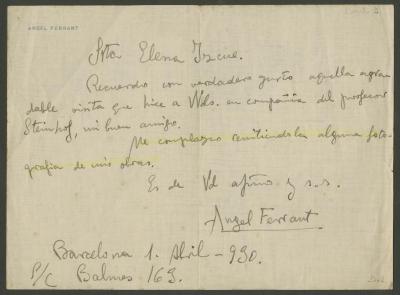 ANGEL FERRANT
Srta Elena Izcue.
Recuerdo con verdadero gusto aquella agra-
dable visita que hice a Vds. en compañia del profesor
Steinhof, mi buen amigo.
Me complazco remitiendola alguna foto-
grafia de mis obras.
Es de Vd afmo. y s.s.
Angel Ferrant.
Barcelona 1. Abril - 930.
S/C Balmes 163.